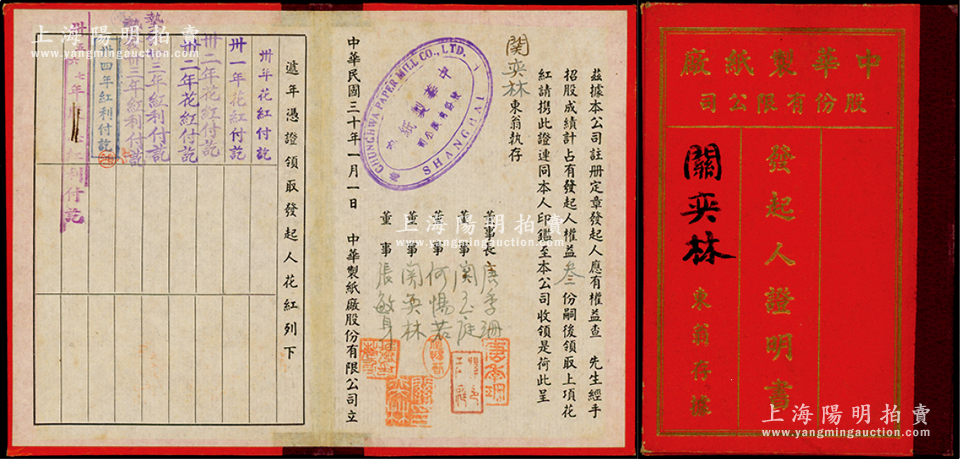 中華製紙廠
股份有限公司
發起人證明書
關奕林
東翁存據
茲據本公司註册定章發起人應有權益查 先生經手
招股成績計占有發起人權益叁份嗣後領取上項花
紅請携此證連同本人印鑑至本公司收領是荷此呈
關奕林東翁執存
董事長唐季珊
董事關玉庭
董事何惕若
董事關奕林
董事張敏身
中華民國三十年一月一日 中華製紙廠股份有限公司立
CHUNGHWA PAPER MILL CO., LTD.
SHANGHAI
遞年憑證領取發起人花紅列下
卅年花紅付訖
卅一年花紅付訖
卅二年花紅付訖
卅二年花紅付訖
卅三年紅利付訖
卅三年紅利付訖
卅四年紅利付訖
上海陽明拍賣
www.yangmingauction.com
上海陽明拍賣
www.yangmingauction.com
上海陽明拍賣
www.yangmingauction.com